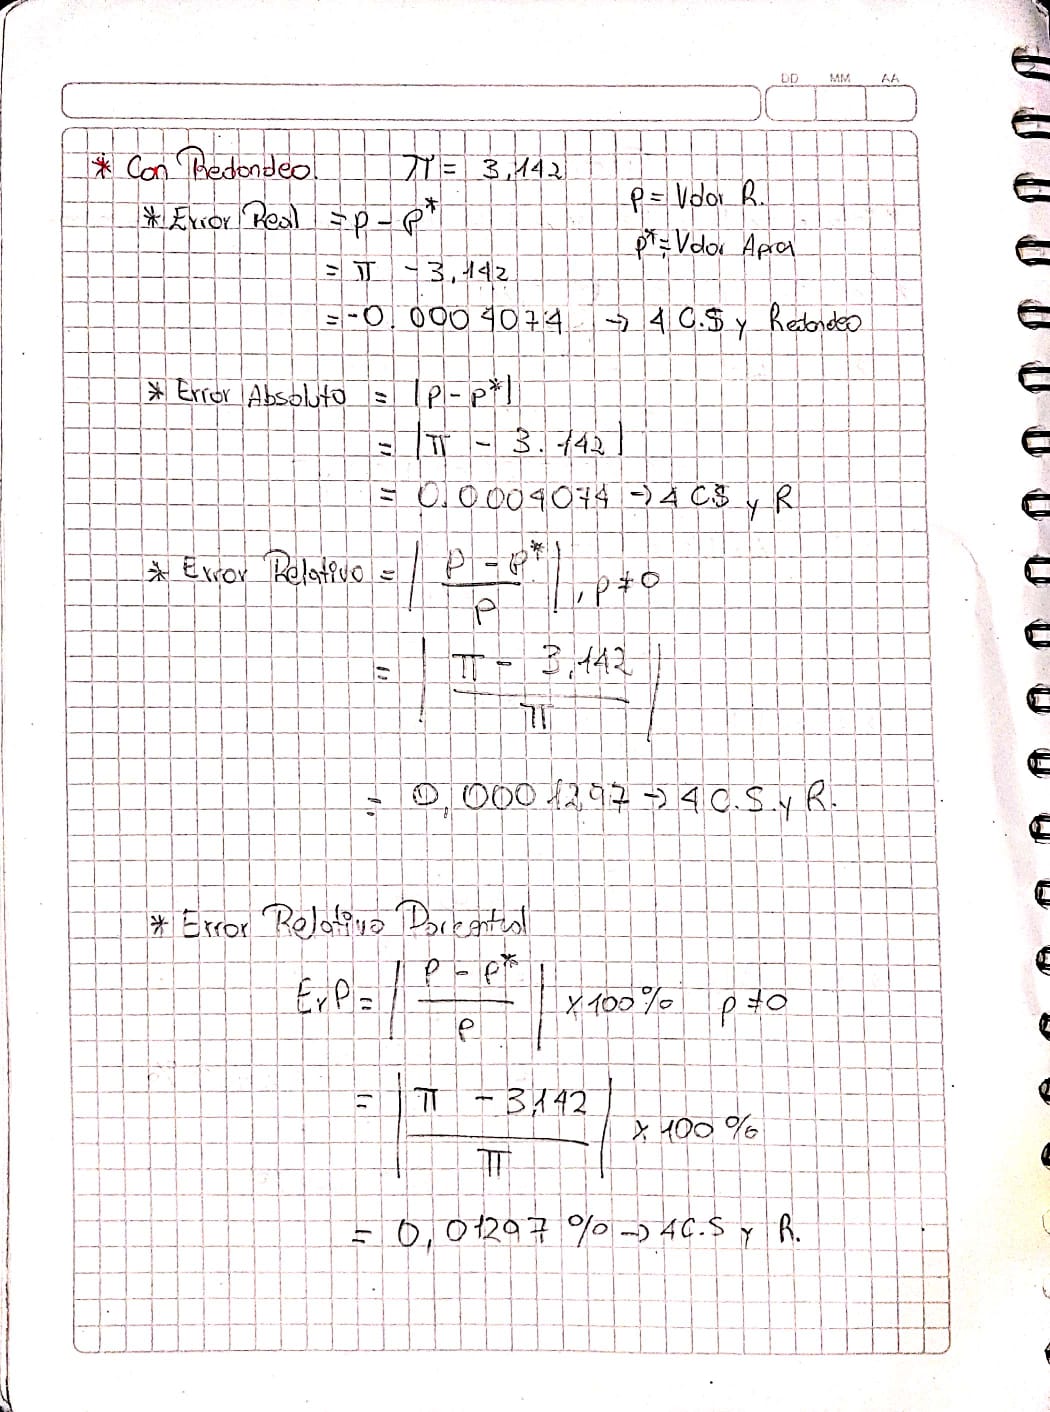 DD MM AA
* Con Redondeo. π = 3,142
p = Valor R.
* Error Real = p - p*
p* = Valor Aprox
= π - 3,142
= -0,0004074 → 4 C.S y Redondeo
* Error Absoluto = |p - p*|
= |π - 3.142|
= 0.0004074 → 4 C.S y R
* Error Relativo = | (p - p*) / p | , p ≠ 0
= | (π - 3,142) / π |
= 0,0001297 → 4 C.S. y R.
* Error Relativo Porcentual
ErP = | (p - p*) / p | x 100% p ≠ 0
= | (π - 3,142) / π | x 100 %
= 0,01297 % → 4 C.S y R.